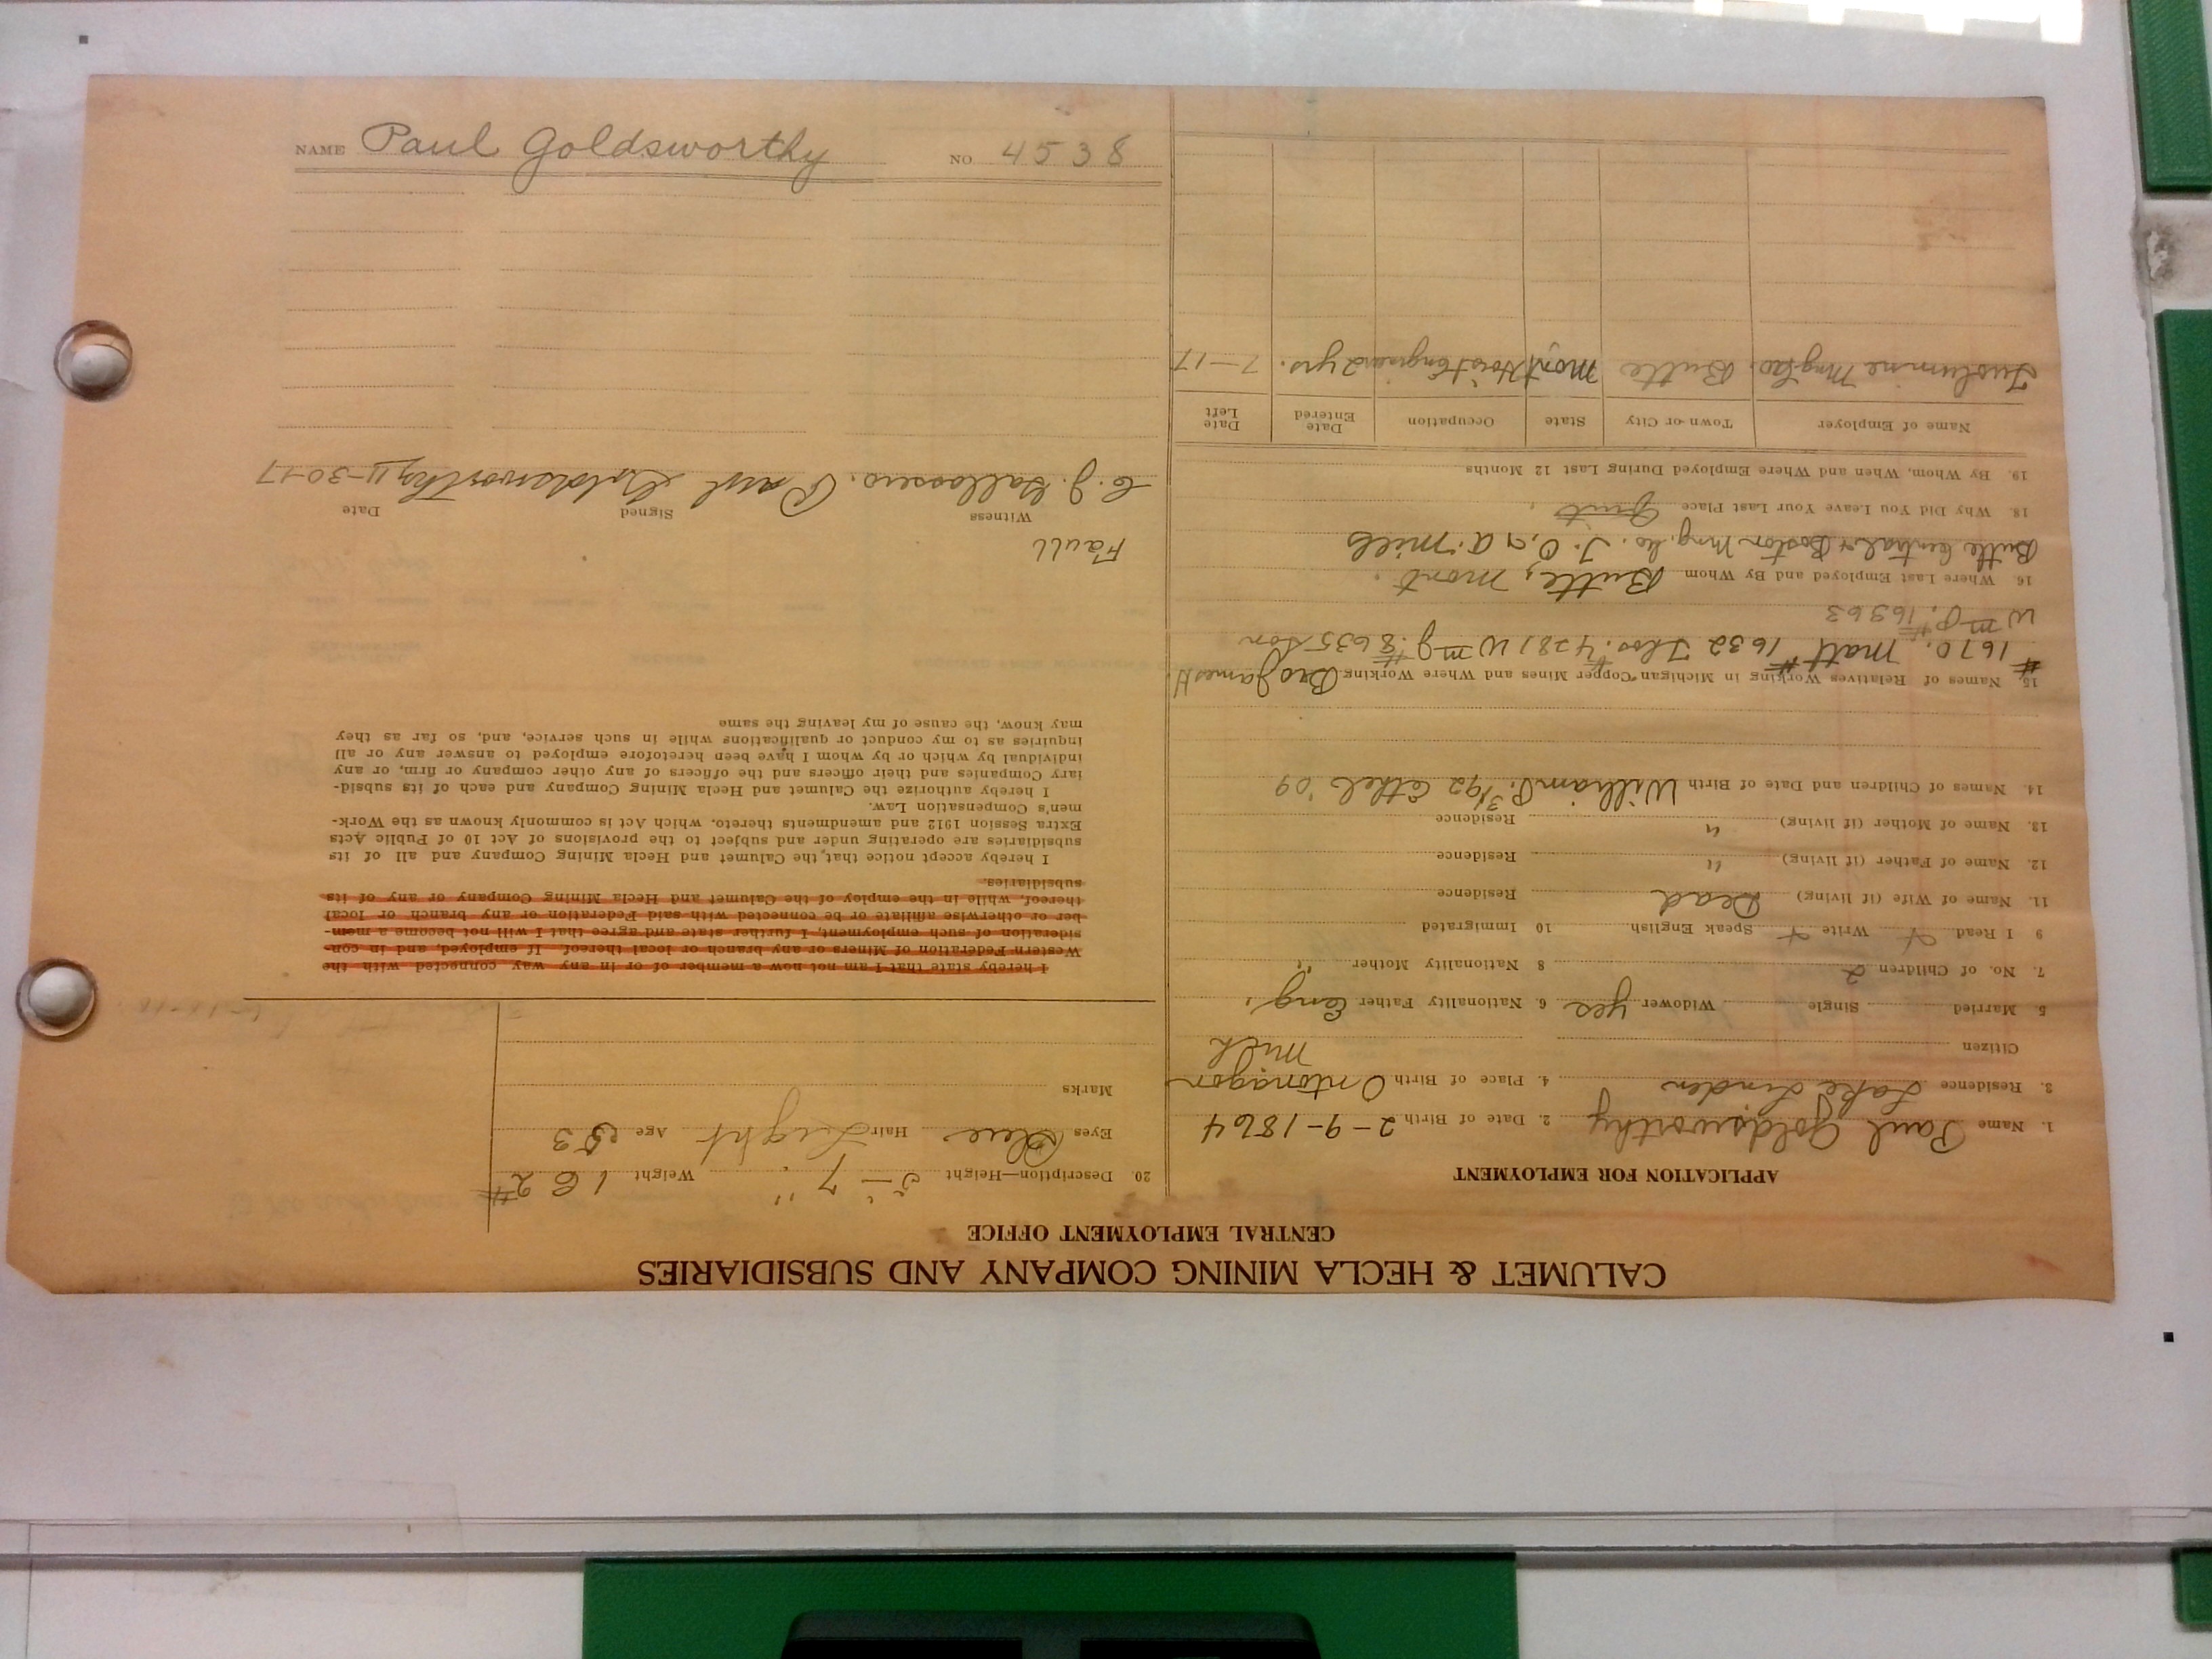 CALUMET & HECLA MINING COMPANY AND SUBSIDIARIES
CENTRAL EMPLOYMENT OFFICE
APPLICATION FOR EMPLOYMENT
1. Name Paul Goldsworthy 2. Date of Birth 2-9-1864
3. Residence Lake Linden 4. Place of Birth Ontonagon
Mich
Citizen
5. Married Single Widower yes 6. Nationality Father Eng.
7. No. of Children 2 8 Nationality Mother "
9 I Read + Write + Speak English. 10 Immigrated
11. Name of Wife (if living) Dead Residence
12. Name of Father (if living) " Residence
13. Name of Mother (if living) " Residence
14. Names of Children and Date of Birth William P. 3/92 Ethel '09
15 Names of Relatives Working in Michigan Copper Mines and Where Working Bro James H.
# 1670. Matt # 1632 Thos. # 4281 Wm J. # 8635 son
Wm P. # 16963
16. Where Last Employed and By Whom Butte, Mont.
Butte Central & Boston Mng. Co. J. O. a. Mills
18. Why Did You Leave Your Last Place Quit
19. By Whom, When and Where Employed During Last 12 Months
Name of Employer Town or City State Occupation Date Entered Date Left
Mng Co. Butte Mont Hoist Engineer 2 yrs. 7-17
20. Description—Height 5'-7" Weight 162 #
Eyes Blue Hair Light Age 53
Marks
I hereby state that I am not now a member of or in any way connected with the
Western Federation of Miners or any branch or local thereof. If employed, and in con-
sideration of such employment, I further state and agree that I will not become a mem-
ber or otherwise affiliate or be connected with said Federation or any branch or local
thereof, while in the employ of the Calumet and Hecla Mining Company or any of its
subsidiaries.
I hereby accept notice that the Calumet and Hecla Mining Company and all of its
subsidiaries are operating under and subject to the provisions of Act 10 of Public Acts
Extra Session 1912 and amendments thereto, which Act is commonly known as the Work-
men's Compensation Law.
I hereby authorize the Calumet and Hecla Mining Company and each of its subsid-
iary Companies and their officers and the officers of any other company or firm, or any
individual by which or by whom I have been heretofore employed to answer any or all
inquiries as to my conduct or qualifications while in such service, and, so far as they
may know, the cause of my leaving the same
Faull
Witness Signed Date
Paul Goldsworthy 11-30-17
NAME Paul Goldsworthy NO 4538